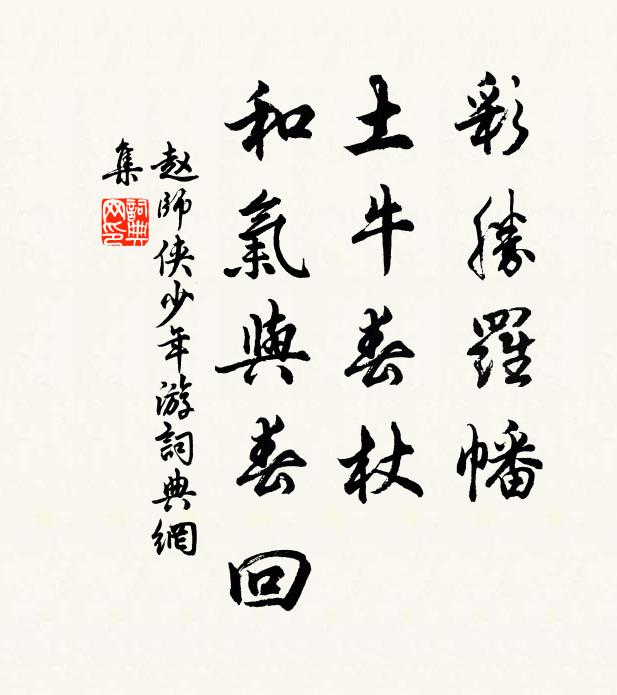 彩勝羅幡
土牛春杖
和氣與春回
赵師俠少年游詞典網
集
詞典
网印